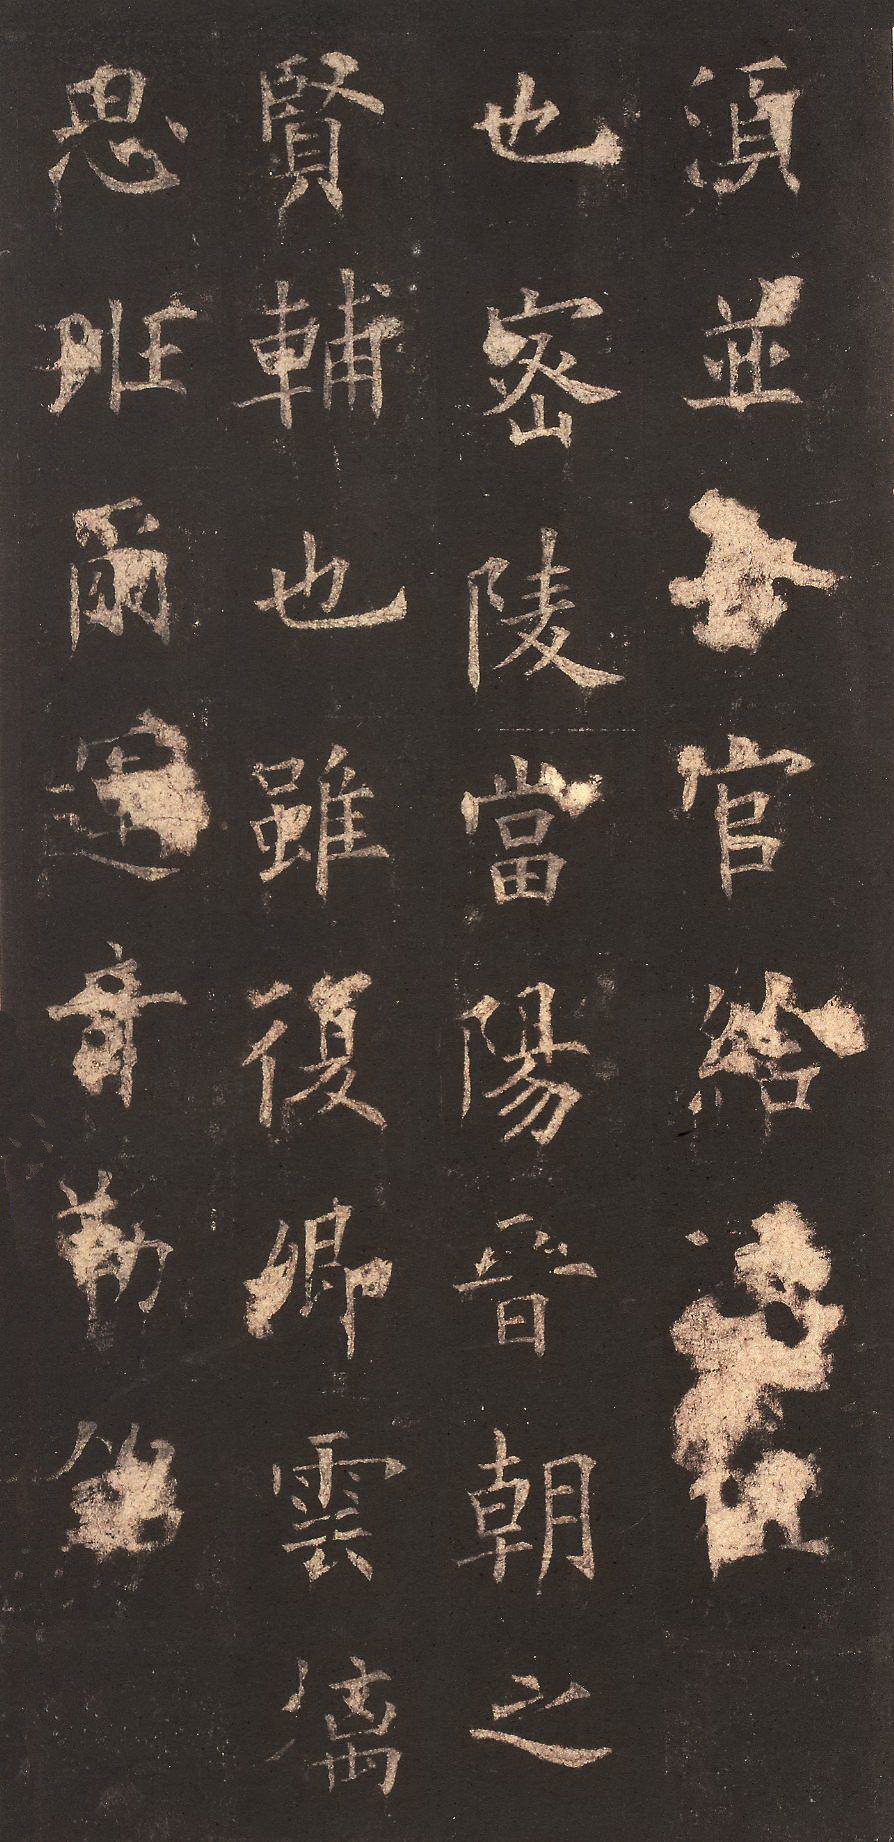 須並官給
也密陵當陽晉朝之
賢輔也雖復卿雲
思班爾運勒